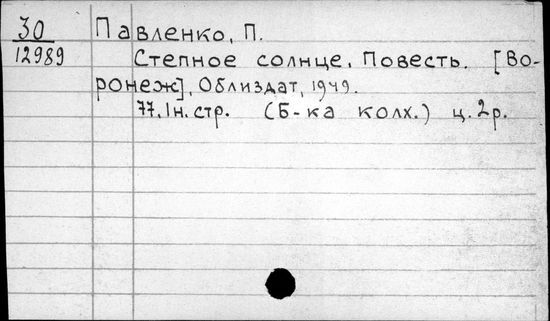 30 Павленко, П.
12989 Степное солнце. Повесть. [Во-
ронеж], Облиздат, 1949.
77.1н.стр. (Б-ка колх.) ц.2р.